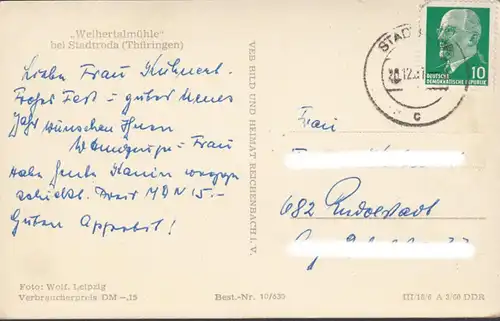 „Weihertalmühle"
bei Stadtroda (Thüringen)
Liebe Frau Kühnert.
Frohes Fest – gutes Neues
Jahr wünschen Ihnen
– Frau
Habe heute Kanin
schickt. Preis MDN 15.–
Guten Appetit!
VEB BILD UND HEIMAT REICHENBACH i. V.
STADT
12.
c
10
DEUTSCHE
DEMOKRATISCHE REPUBLIK
Frau
682 Rudolstadt
Foto: Wolf, Leipzig
Verbraucherpreis DM –,15
Best.-Nr. 10/630
III/18/6 A 3/60 DDR